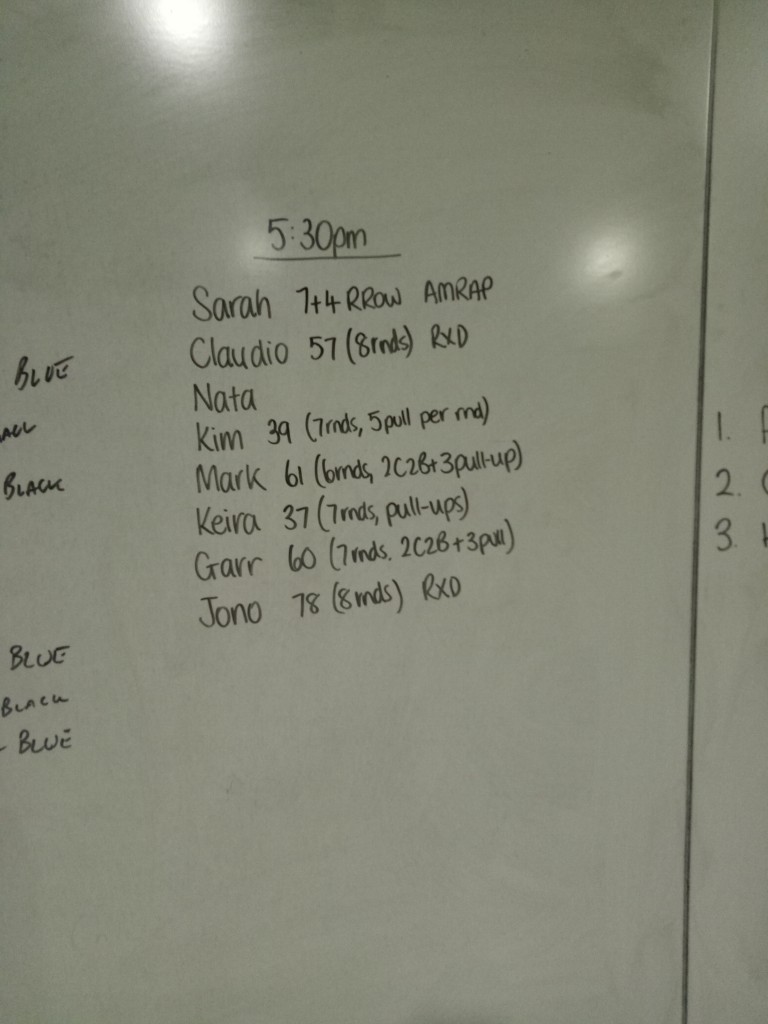 5:30pm
Sarah 7+4 RROW AMRAP
Claudio 57 (8rnds) RXD
Nata
Kim 39 (7rnds, 5pull per rnd)
Mark 61 (6rnds, 2C2B+3pull-up)
Keira 37 (7rnds, pull-ups)
Garr 60 (7rnds. 2C2B+3pull)
Jono 78 (8rnds) RXD
BLUE
BLACK
BLUE
BLACK
- BLUE
1.
2.
3.